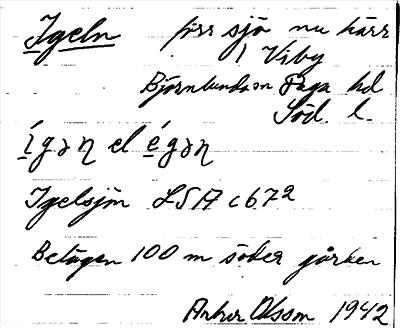 Igeln förr sjö nu kärr
i Viby
Björnlunda sn Daga hd
Söd. l.
ígən el égən
Igelsjön LSA c 67²
Belägen 100 m söder gården
Arthur Olsson 1942